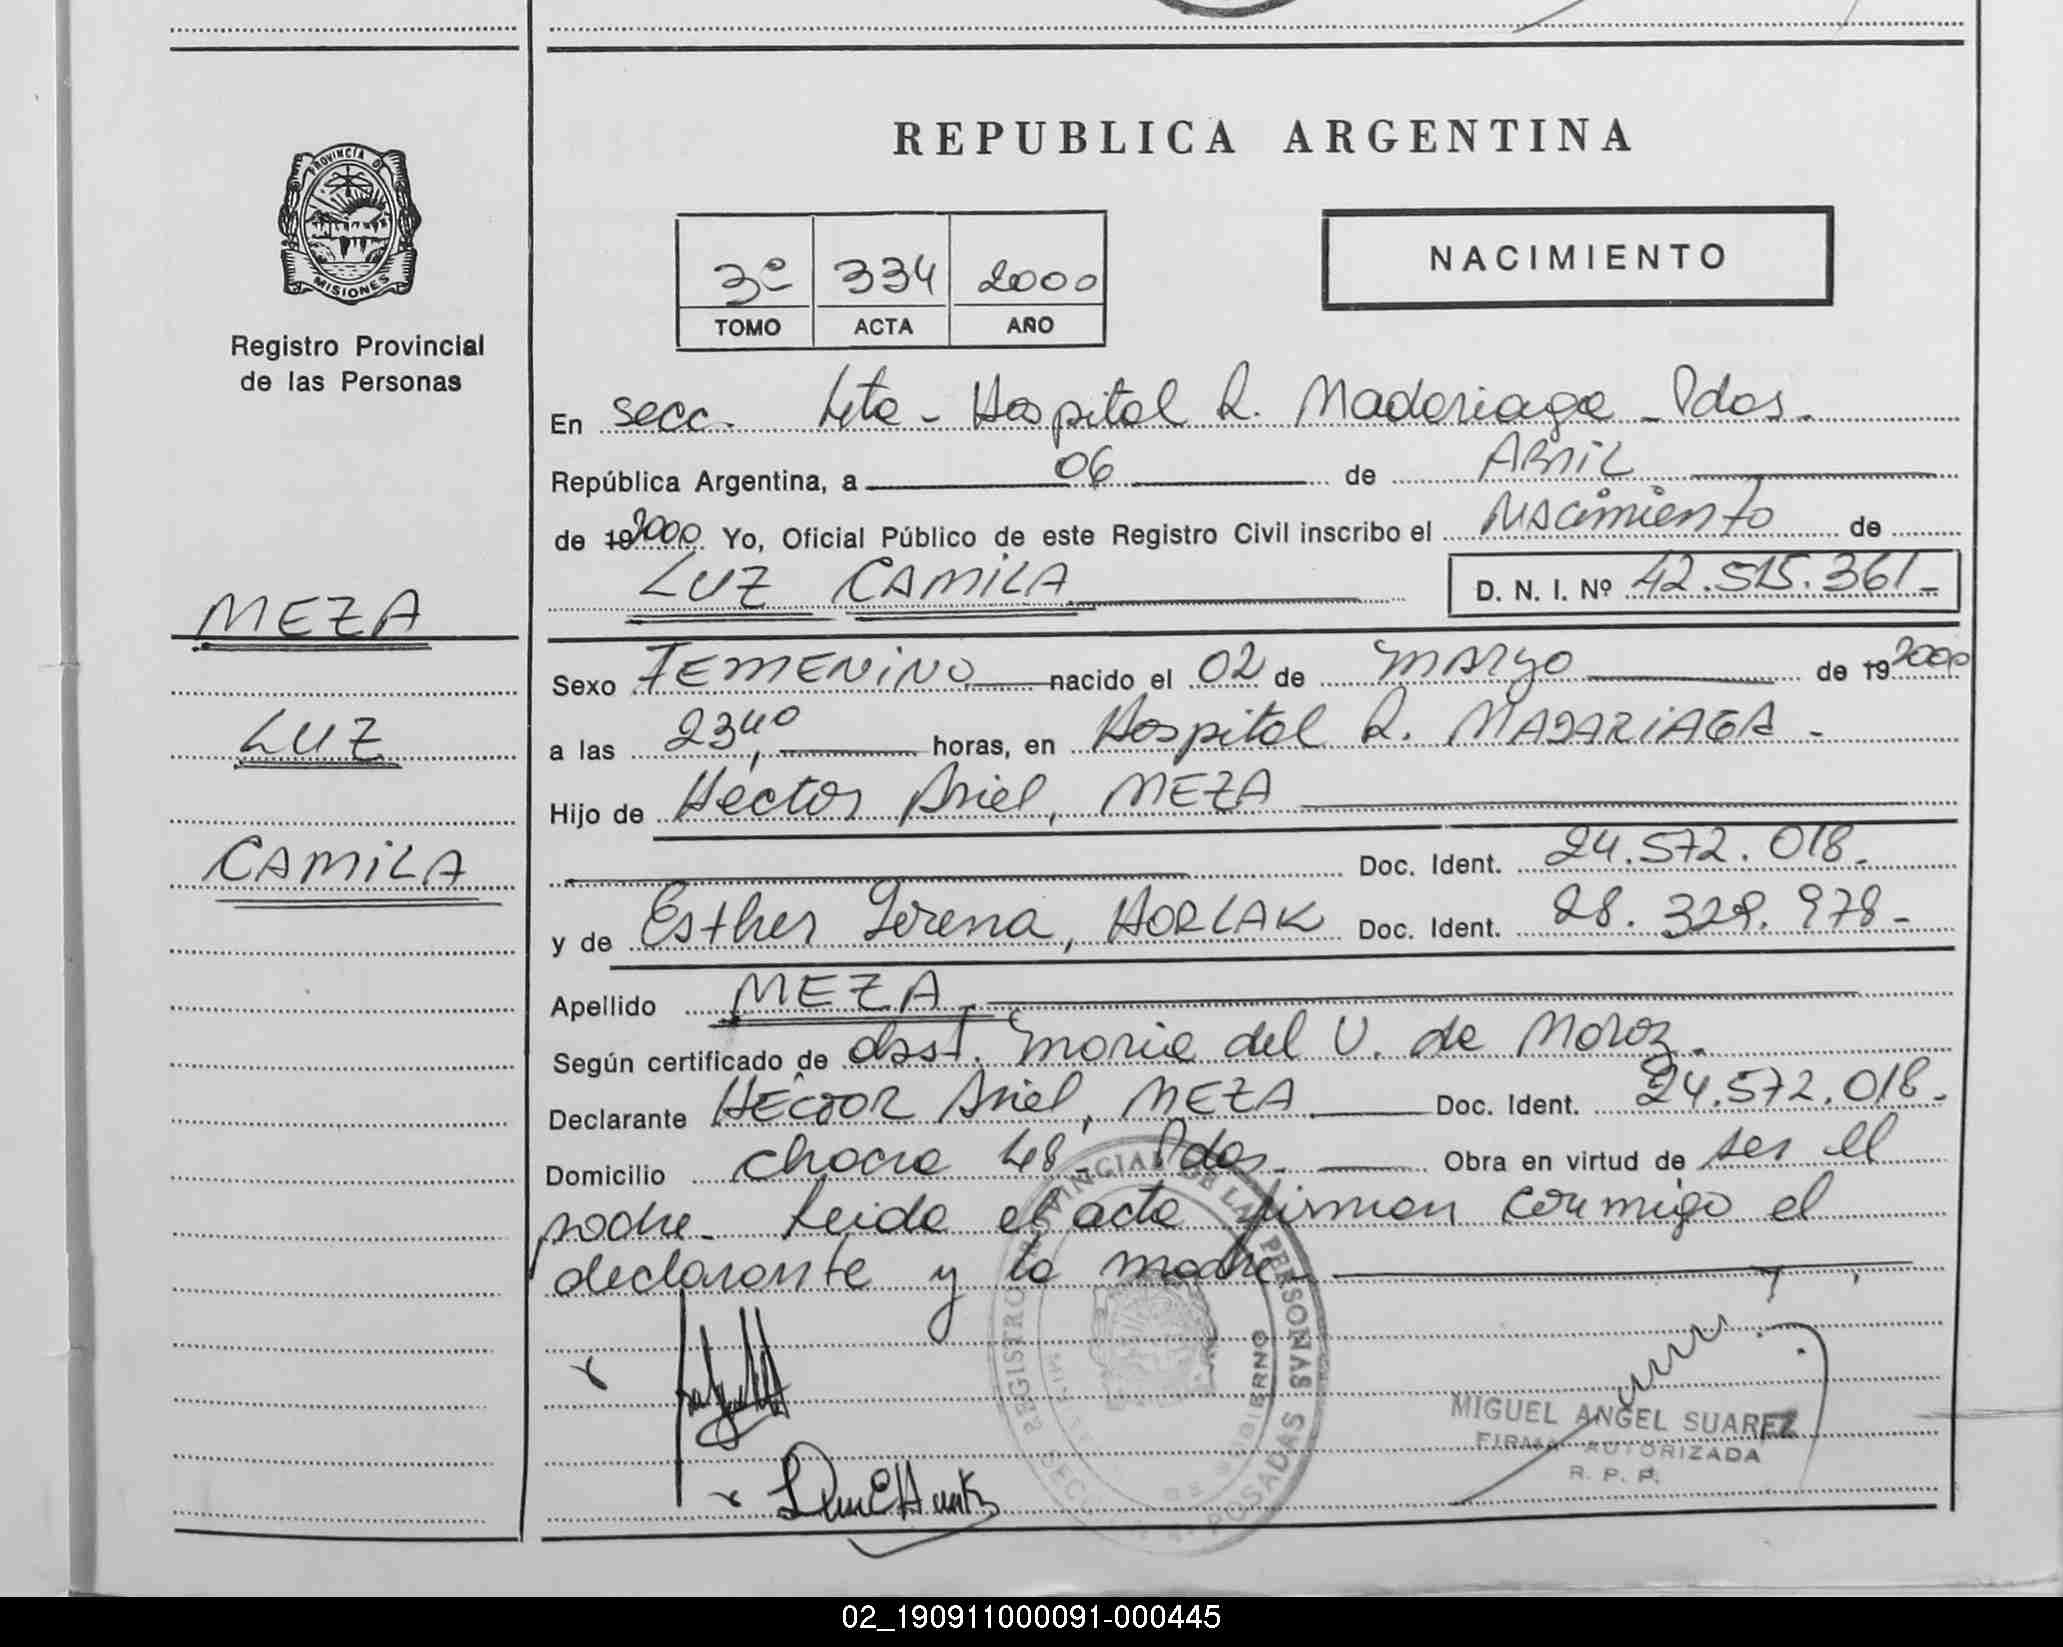 REPUBLICA ARGENTINA
PROVINCIA DE
MISIONES
Registro Provincial
de las Personas
3º 334 2000
TOMO ACTA AÑO
NACIMIENTO
En secc. 4ta - Hospital R. Madariaga - Pdas.
República Argentina, a 06 de ABRIL
de 19 2000 Yo, Oficial Público de este Registro Civil inscribo el NACimiento de
LUZ CAMILA D. N. I. Nº 42.515.361-
MEZA
LUZ
CAMILA
Sexo FEMENINO nacido el 02 de MARZO de 19 2000
a las 23,40 horas, en Hospital R. MADARIAGA -
Hijo de Héctor Ariel, MEZA
Doc. Ident. 24.572.018-
y de Esther Lorena, HORLAK Doc. Ident. 28.329.978-
Apellido MEZA
Según certificado de obst. Maria del V. de Moroz.
Declarante HÉCTOR Ariel, MEZA Doc. Ident. 24.572.018-
Domicilio chacra 48 - Pdas. Obra en virtud de ser el
padre. Leida el acta firman conmigo el
declarante y la madre
REGISTRO PROVINCIAL DE LAS PERSONAS
POSADAS
MIGUEL ANGEL SUAREZ
FIRMA AUTORIZADA
R. P. P.
02_190911000091-000445